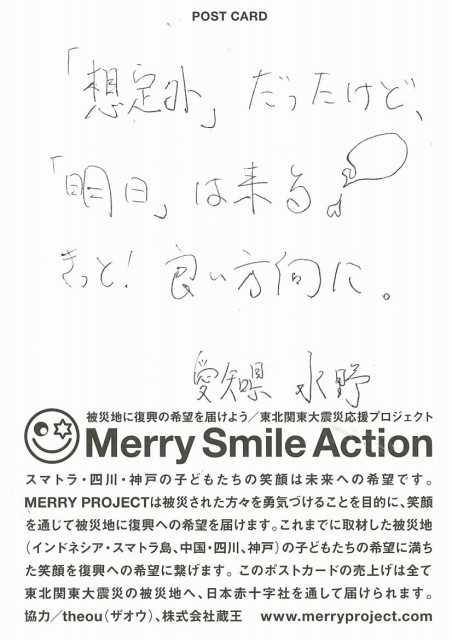 POST CARD
「想定外」だったけど、
「明日」は来る!
きっと!良い方向に。
愛知県 水野
被災地に復興の希望を届けよう/東北関東大震災応援プロジェクト
Merry Smile Action
スマトラ・四川・神戸の子どもたちの笑顔は未来への希望です。
MERRY PROJECTは被災された方々を勇気づけることを目的に、笑顔
を通じて被災地に復興への希望を届けます。これまでに取材した被災地
(インドネシア・スマトラ島、中国・四川、神戸)の子どもたちの希望に満ち
た笑顔を復興への希望に繋げます。このポストカードの売上げは全て
東北関東大震災の被災地へ、日本赤十字社を通して届けられます。
協力/theou(ザオウ)、株式会社蔵王 www.merryproject.com